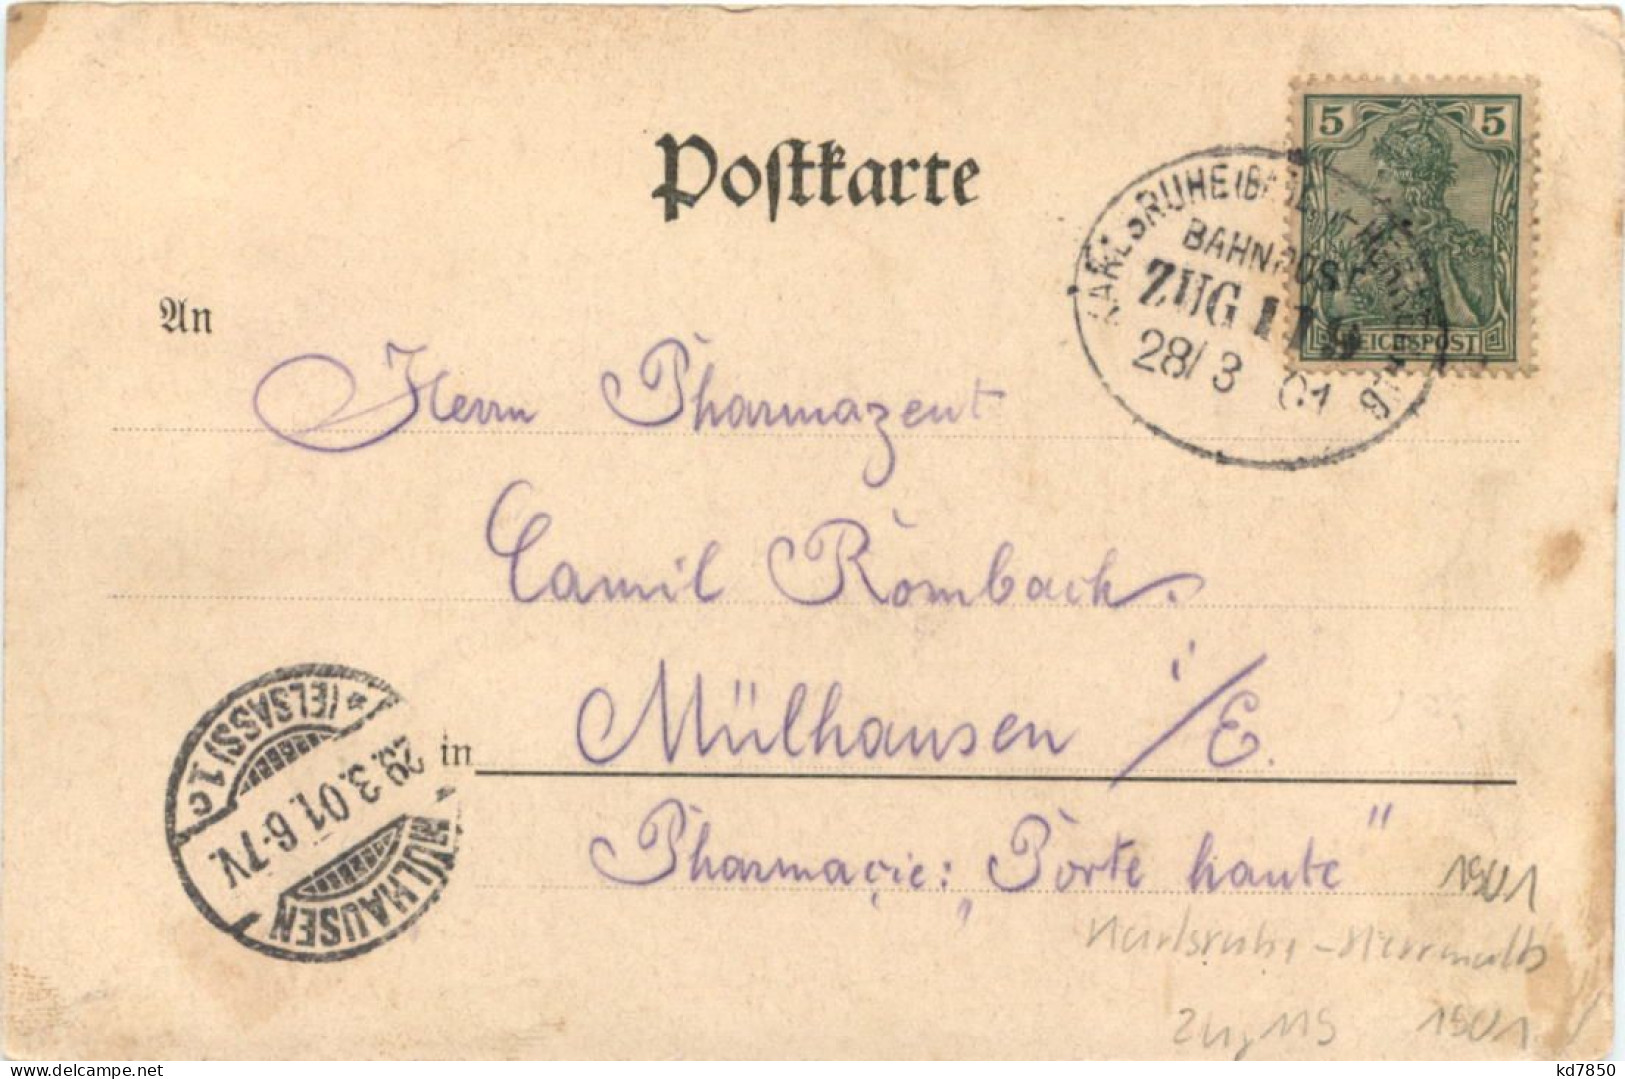 Postkarte
5 5
REICHSPOST
KARLSRUHE (BADEN)
BAHNPOST
ZUG 119
28/3 01
An
Herrn Pharmazeut
Camil Rombach.
in Mülhausen i/E.
Pharmacie: „Porte haute"
MÜLHAUSEN
29.3.01. 6-7V.
* (ELSASS) 1 c
1901
Karlsruhe - Herrenalb
Zug 119 1901
kd7850